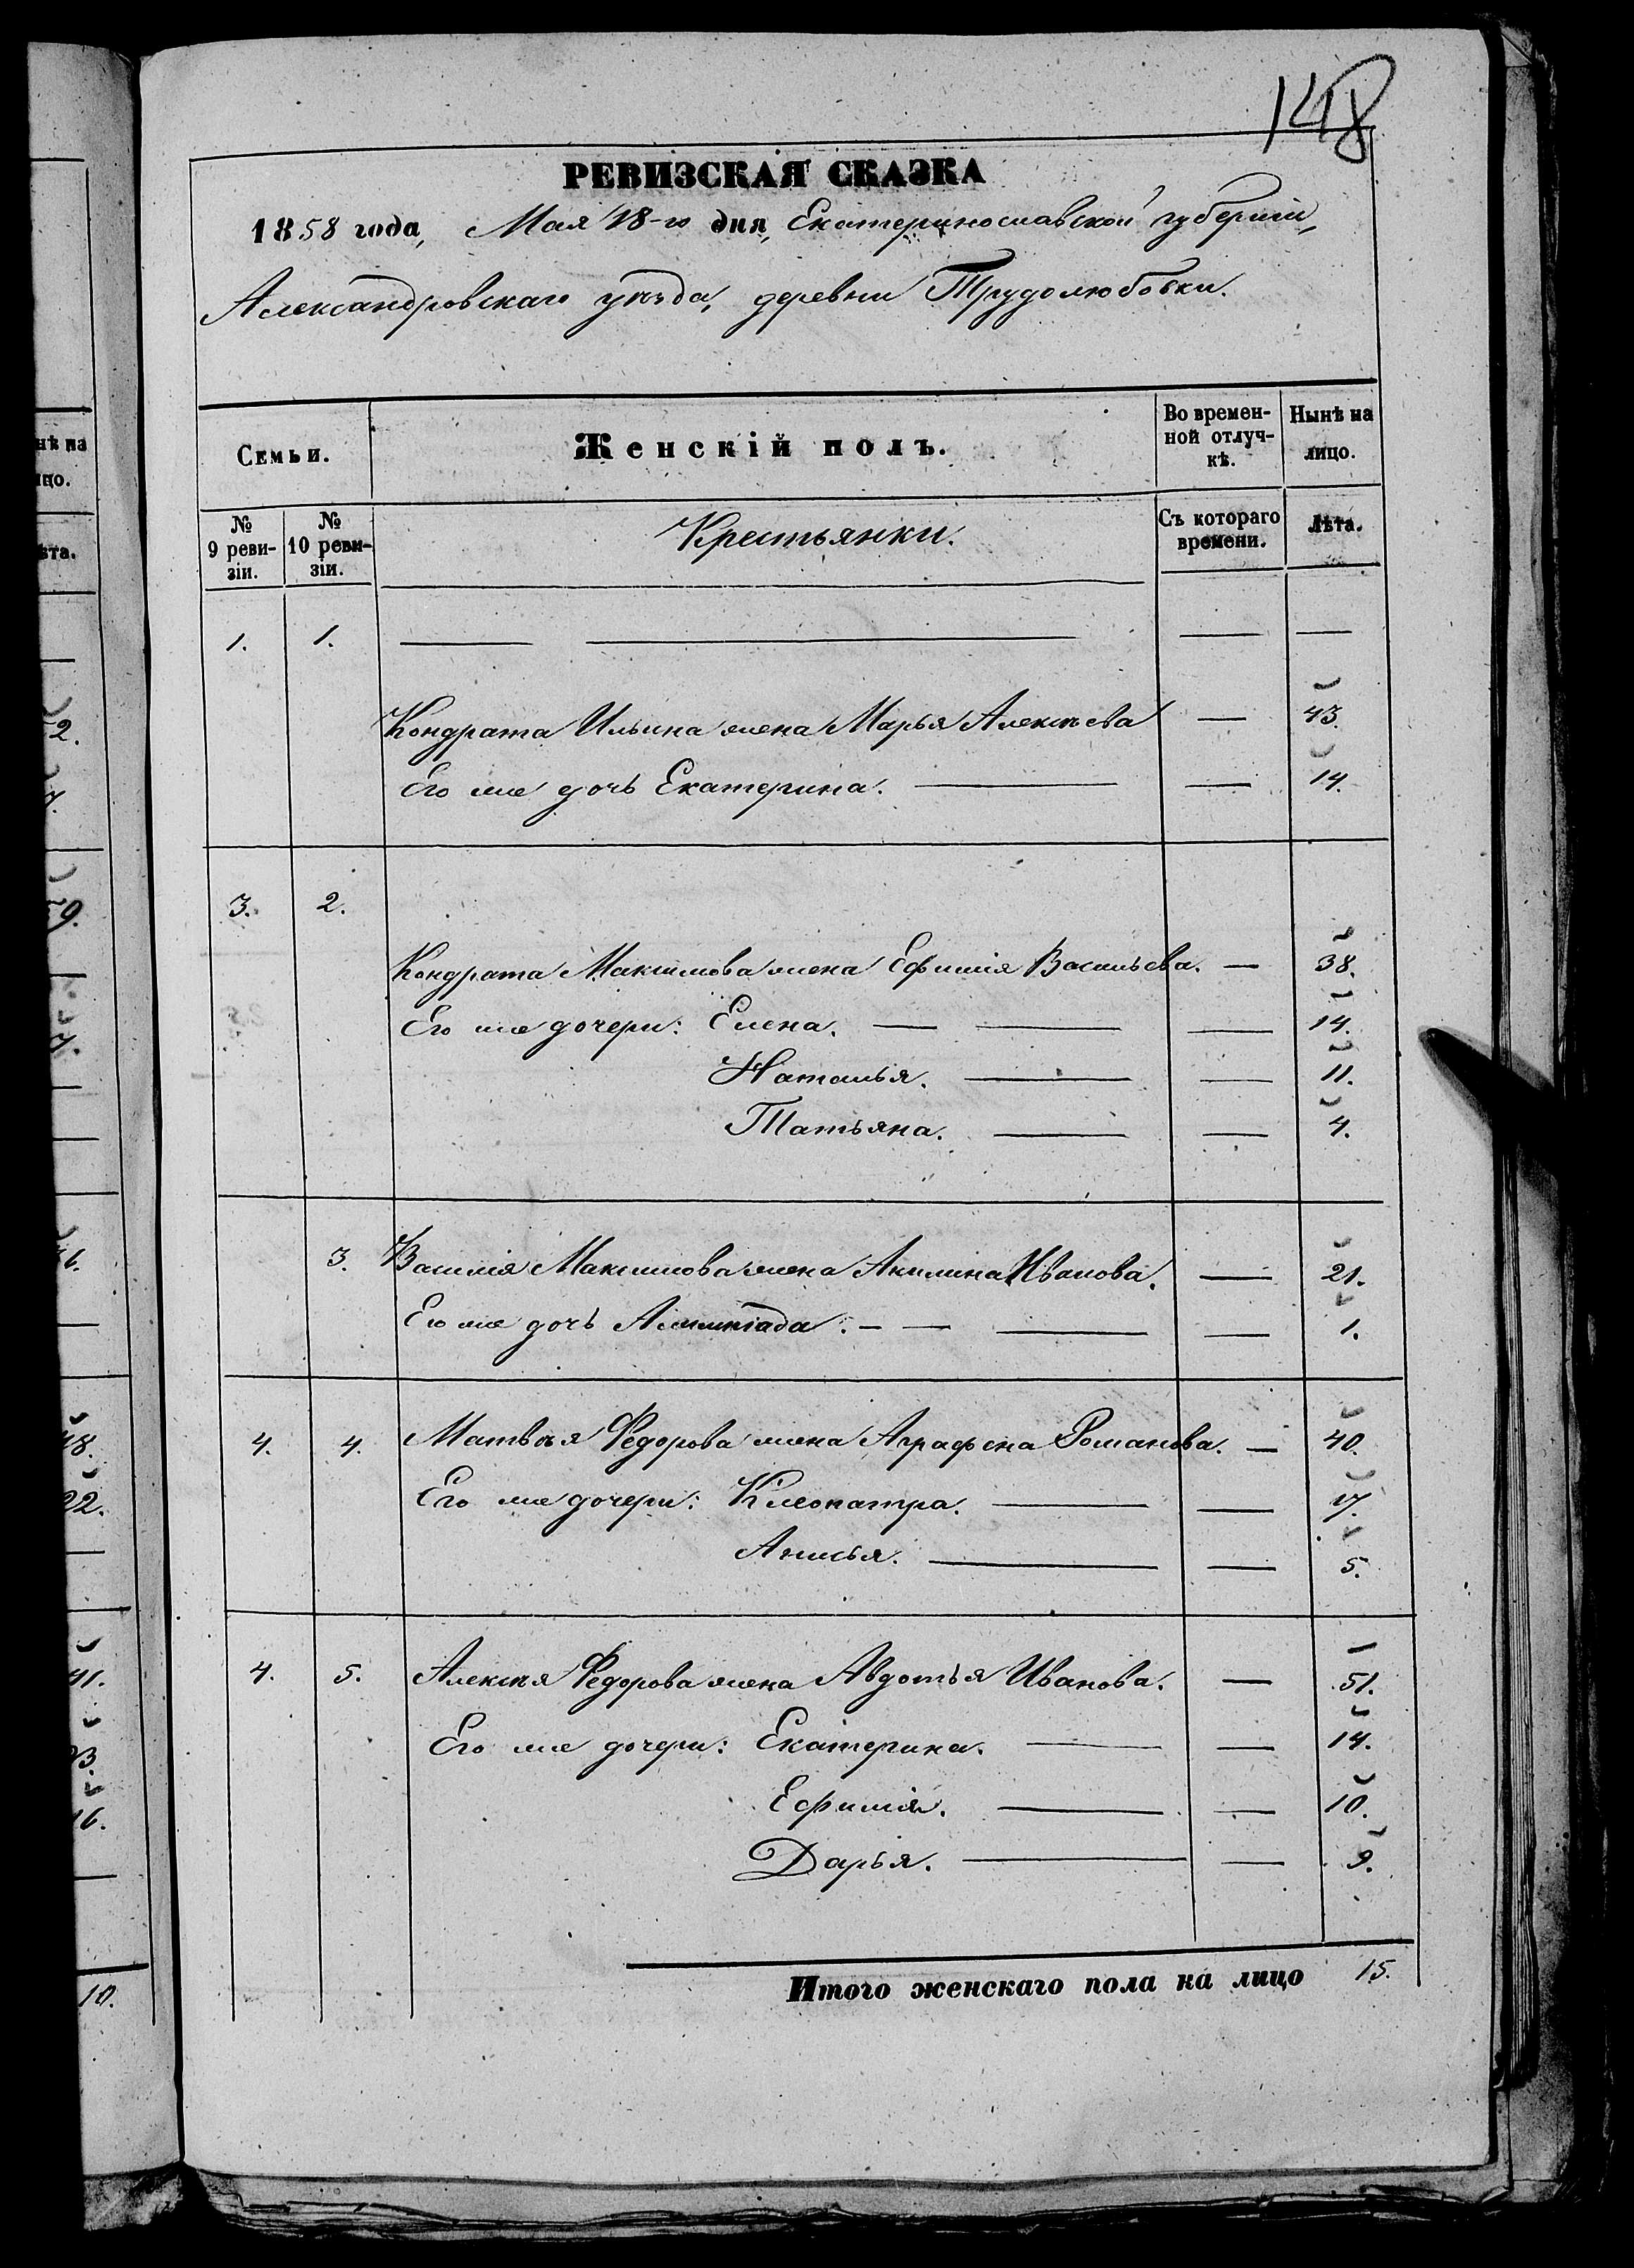 148
РЕВИЗСКАЯ СКАЗКА
1858 года, Мая 18-го дня, Екатеринославской губерніи,
Александровскаго уѣзда, деревни Трудолюбовки.
Семьи.
Женскій полъ.
Во времен-
ной отлуч-
кѣ.
Нынѣ на
лицо.
№
9 реви-
зіи.
№
10 реви-
зіи.
Крестьянки.
Съ котораго
времени.
Лѣта.
1. 1. — — — —
Кондрата Ильина жена Марья Алексѣева — 43.
Его же дочь Екатерина. — — 14.
3. 2.
Кондрата Максимова жена Ефимія Васильева. — 38.
Его же дочери: Елена. — — — 14.
Наталья. — — 11.
Татьяна. — — 4.
3. Василія Максимова жена Акилина Иванова. — 21.
Его же дочь Алимпіада. — — — — 1.
4. 4. Матвѣя Федорова жена Аграфена Романова. — 40.
Его же дочери: Клеопатра. — — 17.
Анисья. — — 5.
4. 5. Алексѣя Федорова жена Авдотья Иванова. — 51.
Его же дочери: Екатерина. — — 14.
Ефимія. — — 10.
Дарья. — — 9.
Итого женскаго пола на лицо 15.